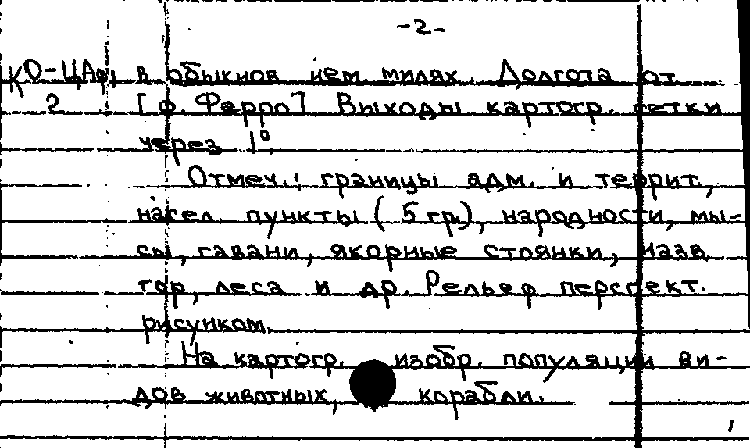 -2-
КО-ЦАФ, в обыкнов нем милях. Долгота от
2 [о. Фарро] Выходы картогр. сетки
через 1°.
Отмеч.: границы адм. и террит.,
насел. пункты (5 гр.), народности, мы-
сы, гавани, якорные стоянки, назв.
гор, леса и др. Рельеф перспект.
рисунком.
На картогр. изобр. популяции ви-
дов животных, корабли.